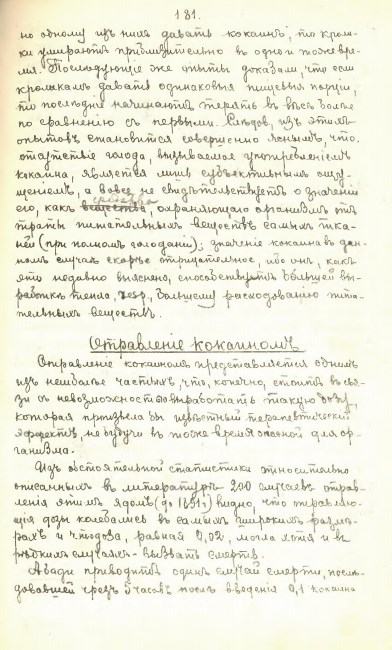 181.
но одному изъ нихъ давать кокаинъ, то кроли-
ки умираютъ приблизительно въ одно и тоже вре-
мя. Послѣдующіе же опыты доказали, что если
кроликамъ давать одинаковыя пищевыя порціи,
то послѣдніе начинаютъ терять въ вѣсѣ болѣе
по сравненію съ первыми. Слѣдов. изъ этихъ
опытовъ становится совершенно яснымъ, что
отсутствіе голода, вызываемое употребленіемъ
кокаина, является лишь субъективнымъ ощу-
щеніемъ, а вовсе не свидѣтельствуетъ о значеніи
его, какъ средства, охраняющаго организмъ отъ
траты питательныхъ веществъ самихъ тка-
ней (при полномъ голоданіи); значеніе кокаина въ дан-
номъ случаѣ скорѣе отрицательное, ибо онъ, какъ
это недавно выяснено, способствуетъ большей вы-
работкѣ тепла, resp. большему расходованію пита-
тельныхъ веществъ.
Отравленіе кокаиномъ
Отравленіе кокаиномъ представляется однимъ
изъ наиболѣе частыхъ, что, конечно, стоитъ въ свя-
зи съ невозможностью выработать такую дозу,
которая произвела бы извѣстный терапевтическій
эффектъ, не будучи въ тоже время опасной для ор-
ганизма.
Изъ обстоятельной статистики относительно
описанныхъ въ литературѣ 200 случаевъ отрав-
ленія этимъ ядомъ (до 1891 г) видно, что отравляю-
щія дозы колебались въ самыхъ широкихъ размѣ-
рахъ и что доза, равная 0,02, могла хотя и въ
рѣдкихъ случаяхъ - вызвать смерть.
Абади приводитъ одинъ случай смерти, послѣ-
довавшей чрезъ 5 часовъ послѣ введенія 0,1 кокаина